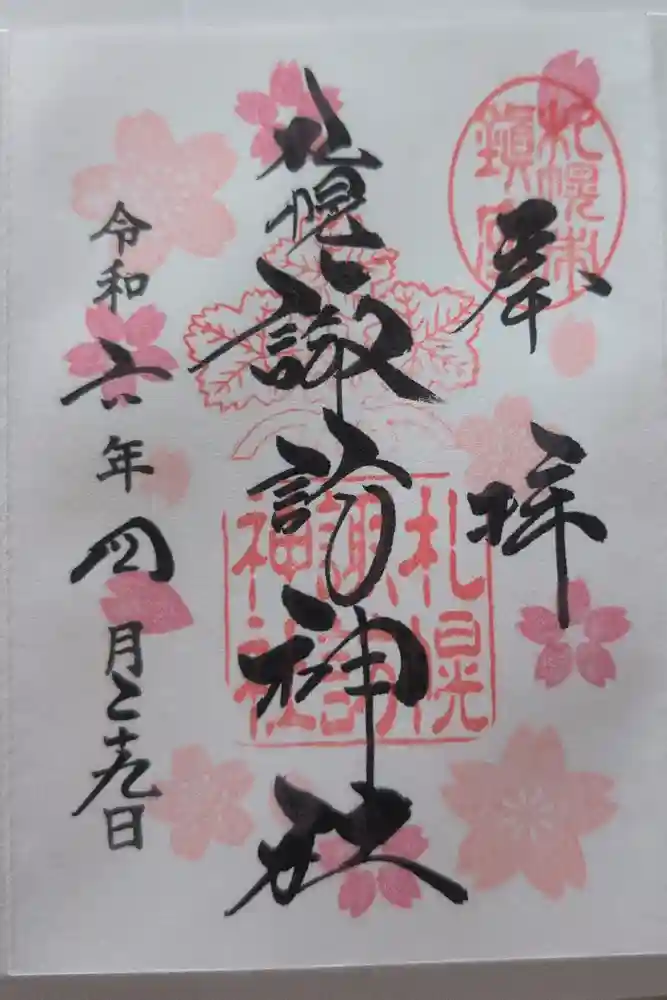 奉拝
札幌諏訪神社
令和六年四月二十九日
札幌市
鎮座
札幌
諏訪
神社